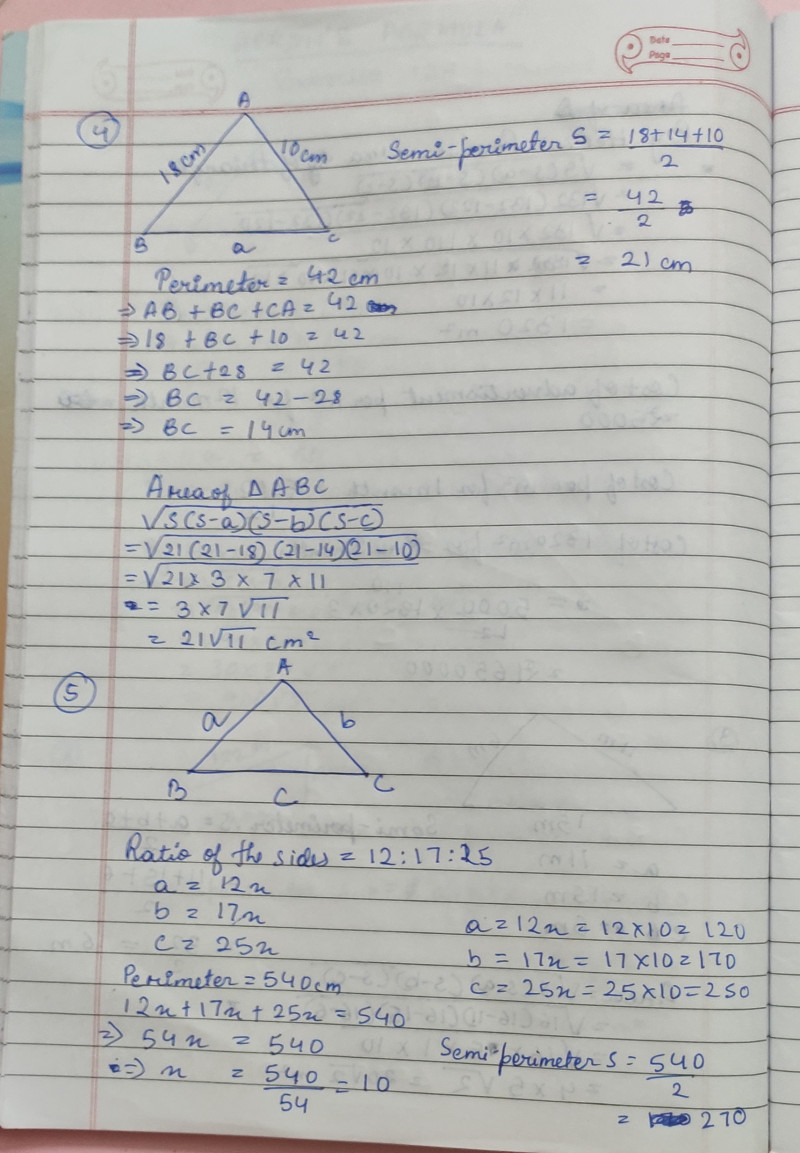 Date
Page
4
A
18cm
10cm
B
a
C
Semi-perimeter S = 18+14+10
2
= 42
2
= 21 cm
Perimeter = 42 cm
⇒ AB + BC + CA = 42
⇒ 18 + BC + 10 = 42
⇒ BC + 28 = 42
⇒ BC = 42 - 28
⇒ BC = 14 cm
Area of △ABC
√S(S-a)(S-b)(S-c)
= √21(21-18)(21-14)(21-10)
= √21 × 3 × 7 × 11
= 3 × 7√11
= 21√11 cm²
5
A
a
b
B
C
C
Ratio of the sides = 12:17:25
a = 12x
b = 17x
c = 25x
Perimeter = 540cm
12x + 17x + 25x = 540
⇒ 54x = 540
⇒ x = 540 = 10
54
a = 12x = 12×10 = 120
b = 17x = 17×10 = 170
c = 25x = 25×10 = 250
Semi-perimeter S = 540
2
= 270